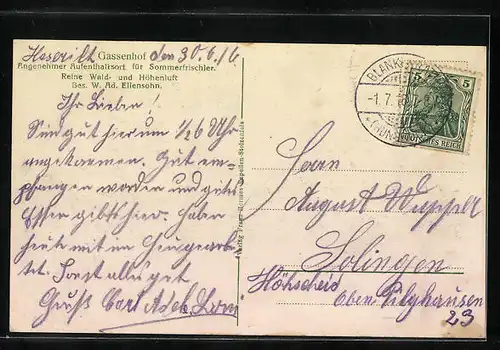 Haserilt Gassenhof den 30.6.16
Angenehmer Aufenthaltsort für Sommerfrischler.
Reine Wald- und Höhenluft
Bes. W. Ad. Ellensohn.
Ihr Lieben!
Sind gut hier um ½6 Uhr
angekommen. Gut em-
pfangen worden und gutes
Essen giebts hier. Haben
heute mit im
Sonst alles gut
Gruß Carl
BLANK
-1.7.16
5 5
DEUTSCHES REICH
Herrn
August Wupper
Solingen
Höhscheid
Oben Pilghausen
23